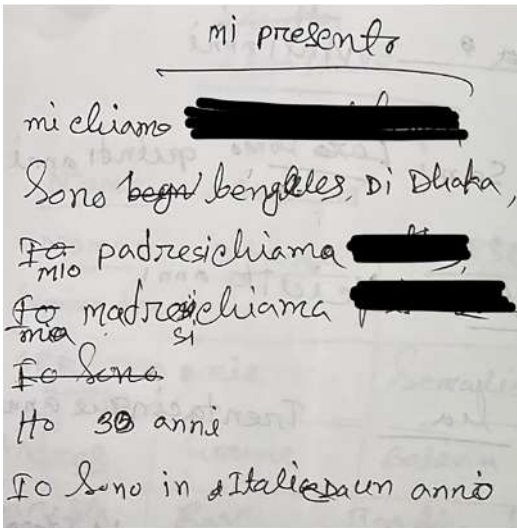 mi presento
mi chiamo
Sono begn bengales, Di Dhaka,
Io mio padresichiama
Io mia madre si chiama
Io Sono
Ho 30 anni
Io Sono in Italia Da un annio